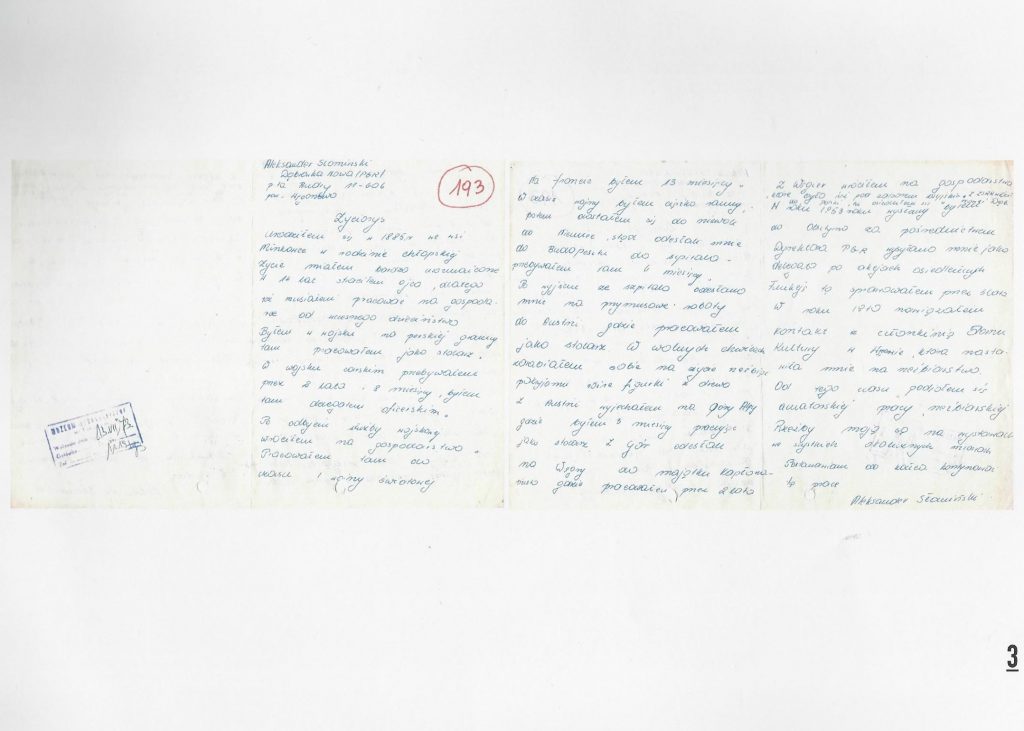 Aleksander Słomiński
Dąbrówka Nowa (PGR)
p-ta Budry 11-606
pow. Węgorzewo
193
Życiorys
Urodziłem się w 1885 r we wsi
Minkowce w rodzinie chłopskiej
Życie miałem bardzo urozmaicone
W 14 lat straciłem ojca, dlatego
też musiałem pracować na gospodar-
ce od wczesnego dzieciństwa
Byłem w wojsku na perskiej granicy
tam pracowałem jako stolarz.
W wojsku carskim przebywałem
przez 2 lata i 8 miesięcy, byłem
tam dżegatem oficerskim.
Po odbyciu służby wojskowej
wróciłem na gospodarstwo.
Pracowałem tam do
czasu I wojny światowej
Na froncie byłem 13 miesięcy.
W czasie wojny byłem ciężko ranny,
potem dostałem się do niewoli
do Niemiec, stąd odesłali mnie
do Budapesztu do szpitala.
Przebywałem tam 4 miesiące.
Po wyjściu ze szpitala odesłano
mnie na przymusowe roboty
do Austrii, gdzie pracowałem
jako stolarz. W wolnych chwilach
rzeźbiłem sobie na
różne figurki z drewa
Z Austrii wyjechałem na góry Alpy
gdzie byłem 5 miesięcy pracując
jako stolarz Z gór odesłali
na Węgry do majątku kapłana
tutaj gdzie pracowałem przez 2 lata
Z Węgier wróciłem na gospodarstwo
które było już pod zaborem
W roku 1953 roku wysłany
do Olsztyna za pośrednictwem
Dyrektora PGR wysłano mnie jako
delegata po akcjach osiedleńczych
Funkcję tą sprawowałem przez
W roku 1970 nawiązałem
kontakt z członkinią Domu
Kultury w Węg-wie, która nasta-
wiła mnie na rzeźbiarstwo.
Od tego czasu podjąłem się
amatorskiej pracy rzeźbiarskiej
Rzeźby moje są na wystawach
w miastach
Postanawiam do końca kontynuować
tę pracę
Aleksander Słomiński
MUZEUM
3